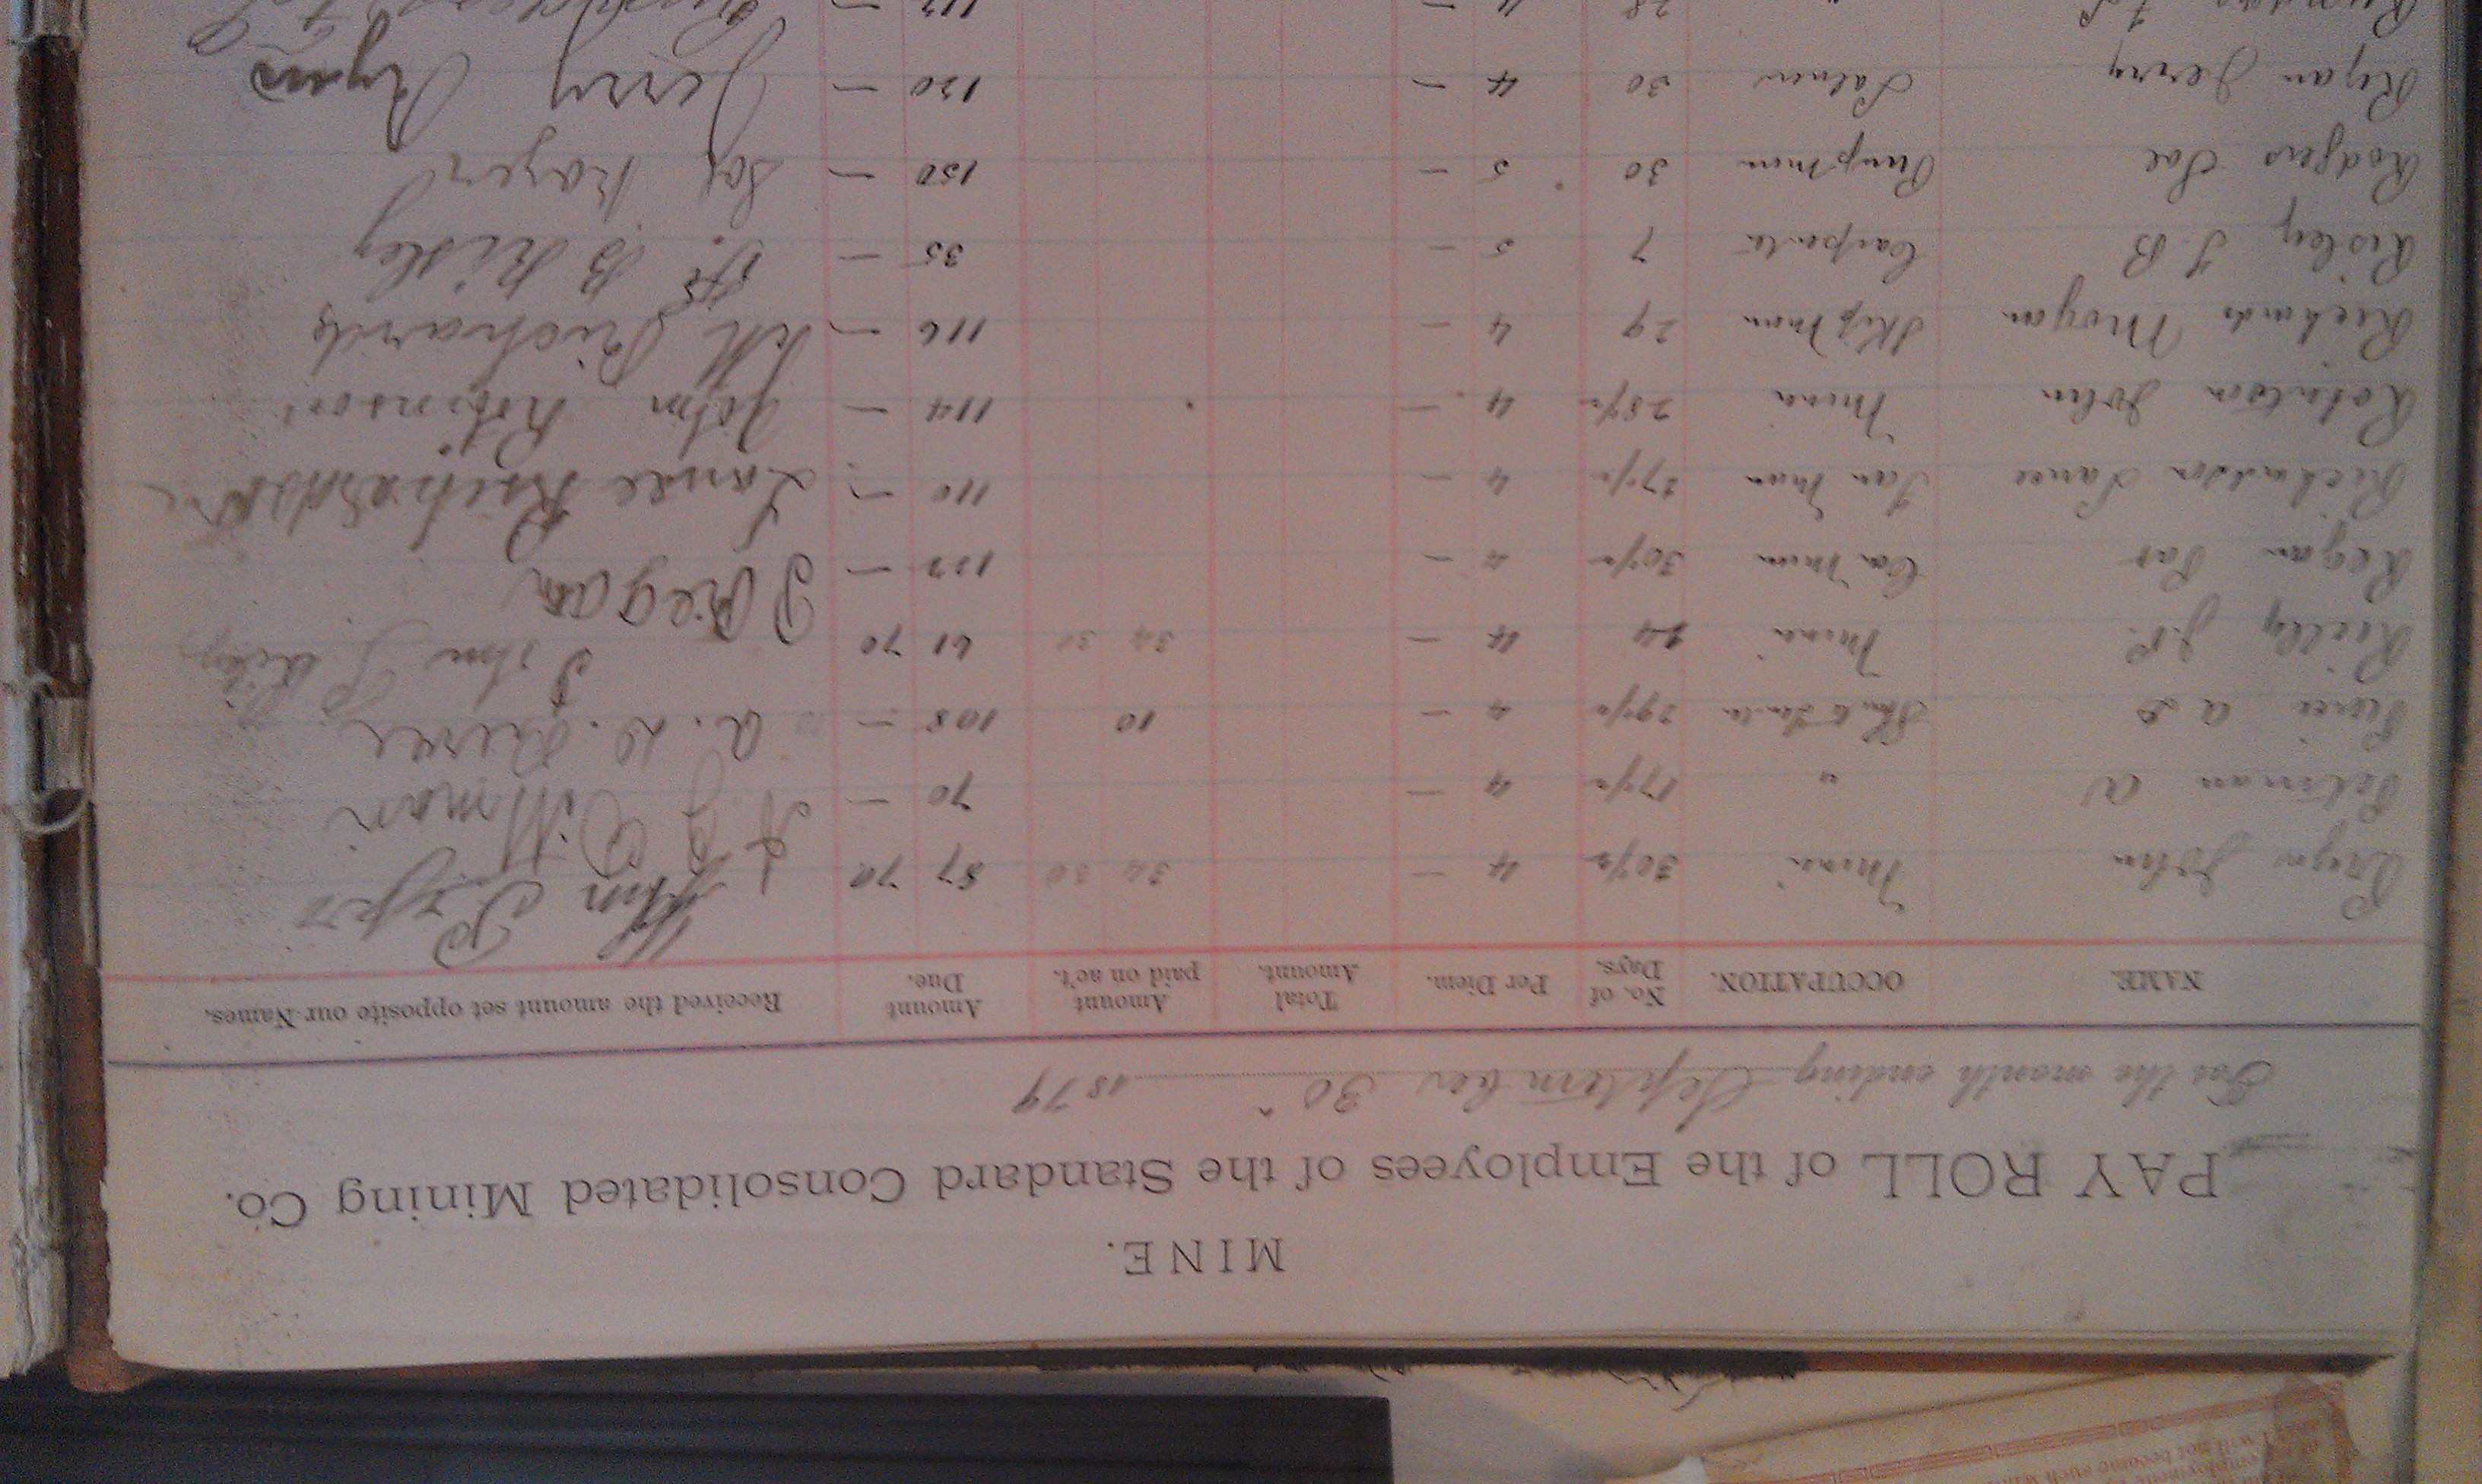 MINE.
PAY ROLL of the Employees of the Standard Consolidated Mining Co.
For the month ending September 30" 1879
NAME. OCCUPATION. No. of Days. Per Diem. Total Amount. Amount paid on ac't. Amount Due. Received the amount set opposite our Names.
John Miner 30½ 4 — 34 30 87 70 John
Pittman A " 17½ 4 — 70 — Pittman
Pierce A D 29½ 4 — 10 108 — A. D. Pierce
Reilly J.P. Miner 24 4 — 34 30 61 70 John P.
Regan Pat Car Man 30½ 4 — 122 — P Regan
Richardson Lance Car Man 27½ 4 — 110 — Lance Richardson
Robinson John Miner 28½ 4 — 114 — John Robinson
Richards Morgan Skip Man 29 4 — 116 — Richards
Risley J.B Carpenter 7 5 — 35 — B Risley
Rodgers Sol Pumpman 30 5 — 150 — Sol
Ryan Jerry 30 4 — 120 — Jerry Ryan
28 4 — 112 —